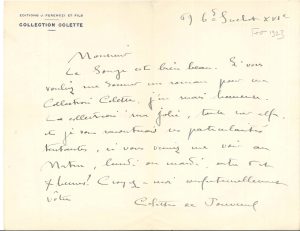 EDITIONS J. FERENCZI ET FILS
COLLECTION COLETTE
69 Bd Suchet XVIe
Monsieur
Le Songe est bien beau. Si vous
vouliez me donner un roman pour ma
Collection Colette, j'en serais heureuse.
La collection est jolie, tirée sur alfa,
et je vous raconterais ses particularités
tentantes, si vous veniez me voir au
Matin, lundi ou mardi, entre 5 et
heures? Croyez-moi confraternellement
vôtre
Colette de Jouvenel